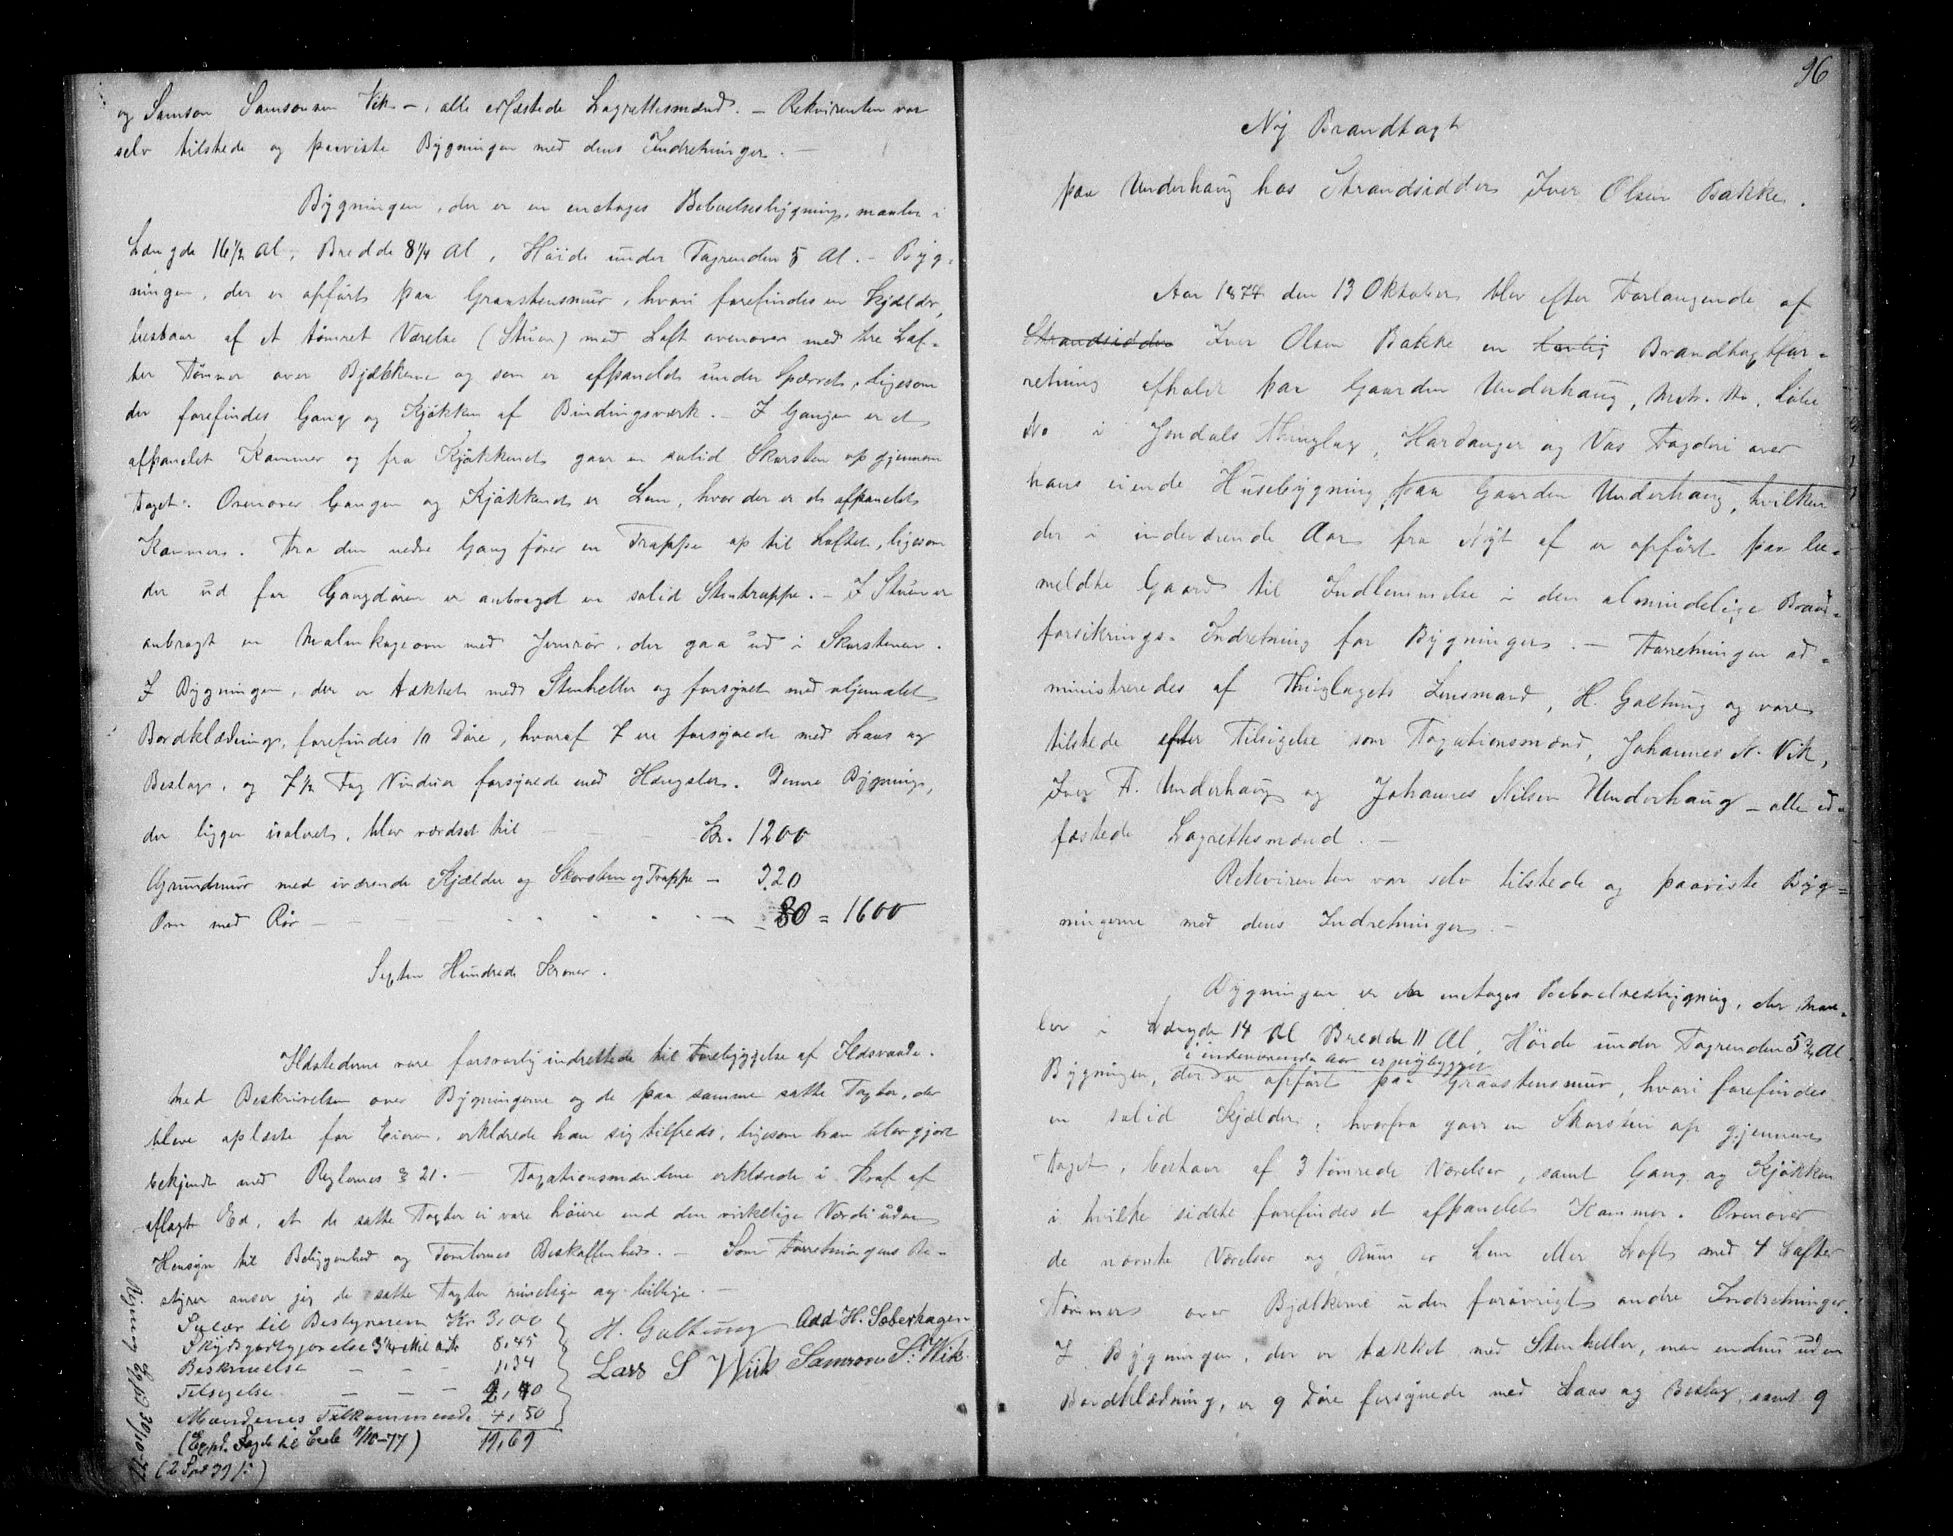 og Samson Samsonsen Vik –, alle edfæstede Lagrettesmænd. – Rekvirenten var
selv tilstede og paaviste Bygningen med dens Indretninger. –
Bygningen, der er en enetages Beboelsesbygning, maaler i
Længde 16 1/2 Al, Bredde 8 1/4 Al, Höide under Tagrenden 5 Al. – Byg-
ningen, der er opfört paa Graastensmur, hvori forefindes en Kjælder,
bestaar af et tömret Værelse (Stuen) med Loft ovenover med tre Laf-
ter Tömmer over Bjælkerne og som er afpanelet under Sperret, ligesom
der forefindes Gang og Kjökken af Bindingsværk. – I Gangen er et
afpanelet Kammer og fra Kjökkenet gaar en solid Skorsten op gjennem
Taget. Ovenover Gangen og Kjökkenet er Lem, hvor der er et afpanelet
Kammers. Fra den nedre Gang förer en Trappe op til Loftet, ligesom
der ud for Gangdören er anbragt en solid Stentrappe. – I Stuen er
anbragt en Malmkageovn med Jernrör, der gaa ud i Skorstenen.
I Bygningen, der er tækket med Stenheller og forsynet med oljemalet
Bordklædning, forefindes 10 Döre, hvoraf 7 ere forsynede med Laas og
Beslag, og 7 1/2 Fag Vinduer forsynede med Hængsler. Denne Bygning,
der ligger isoleret, blev værdsat til – – – Kr. 1200
Grundmur med iværende Kjælder og Skorsten og Trappe – 320
Ovn med Rör – – – – 80 = 1600
Sexten Hundrede Kroner.
Ildstederne vare forsvarlig indrettede til Forebyggelse af Ildsvaade.
Med Beskrivelsen over Bygningerne og de paa samme satte Taxter, der
bleve oplæste for Eieren, erklærede han sig tilfreds, ligesom han blev gjort
bekjendt med Reglernes § 21. – Taxationsmændene erklærede i Kraf af
aflagt Ed, at de satte Taxter ei vare höiere end den virkelige Værdi uden
Hensyn til Beliggenhed og Tomternes Beskaffenhed. – Som Forretningens Be-
styrer anser jeg de satte Taxter rimelige og billige. –
Salær til Bestyreren Kr. 3,00
Skydsgodtgjørelse 3 1/4 Mil 8,45
Beskrivelse – 1,34
Tilsigelse – – – 2,40
Mændenes Tilkommende 4,50
(Expd. Sagde til Eieren 11/10–77) 19,69
(2 Spd 39 /:)
H. Galtung Odd H. Soberhagen
Lars S Wiik Samson S. Wik
Regning 30/10-77
96
Ny Brandtaxt
paa Underhaug hos Strandsidder Iver Olsen Bakke.
Aar 1877 den 13 Oktober blev efter Forlangende af
Strandsidder Iver Olsen Bakke en Brandtaxtfor-
retning afholdt paa Gaarden Underhaug, Matr. No, Löbe
No i Jondals Thinglag, Hardanger og Vos Fogderi over
hans eiende Husebygning paa Gaarden Underhaug, hvilken
der i indeværende Aar fra Nyt af er opfört paa be-
meldte Gaard til Indlemmelse i den almindelige Brand-
forsikrings-Indretning for Bygninger. – Forretningen ad-
ministreredes af Thinglagets Lensmand, H. Galtung og vare
tilstede efter Tilsigelse som Taxationsmænd, Johannes N. Vik,
Iver T. Underhaug og Johannes Nilsen Underhaug – alle ed-
fæstede Lagrettesmænd. –
Rekvirenten var selv tilstede og paaviste Byg-
ningerne med dens Indretninger –
Bygningen er en enetages Beboelsesbygning, der maa-
ler i Længde 14 Al Bredde 11 Al, Höide under Tagrenden 5 3/4 Al.
i indeværende Aar er nybygget
Bygningen, der er opfört paa Graastensmur, hvori forefindes
en solid Kjælder, hvorfra gaar en Skorsten op gjennem
Taget, bestaar af 3 tömrede Værelser, samt Gang og Kjökken
i hvilke sidste forefindes et afpanelet Kammer. Ovenover
de nævnte Værelser og Rum er Lem eller Loft med 4 Lafter
Tömmer over Bjælkerne uden forövrigt andre Indretninger.
I Bygningen, der er tækket med Stenheller, men endnu uden
Bordklædning, er 9 Döre forsynede med Laas og Beslag, samt 9